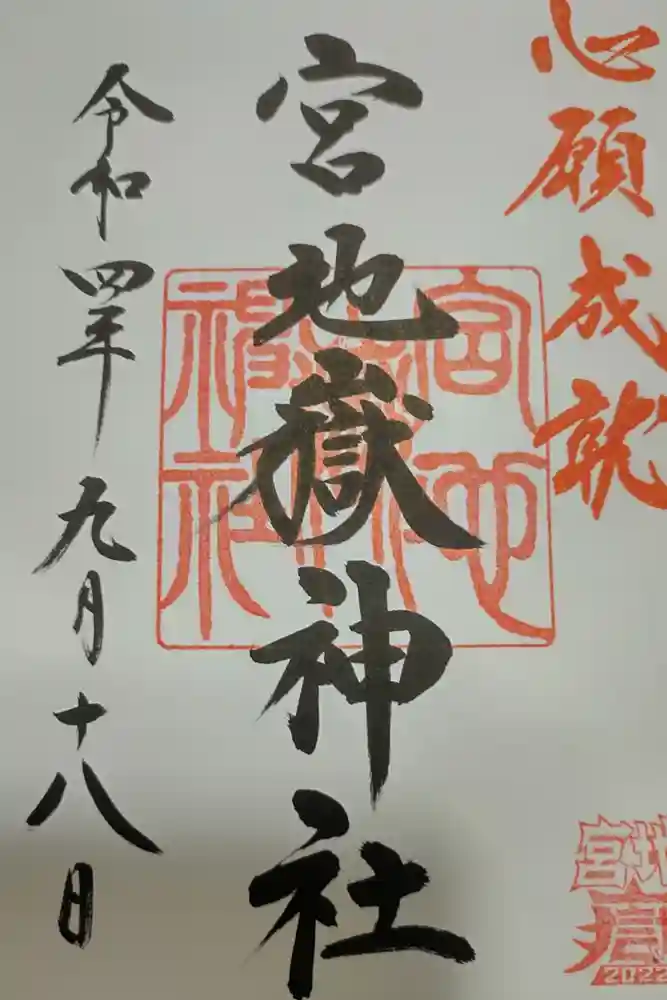 心願成就
宮地嶽神社
令和四年九月十八日
宮地
嶽
2022